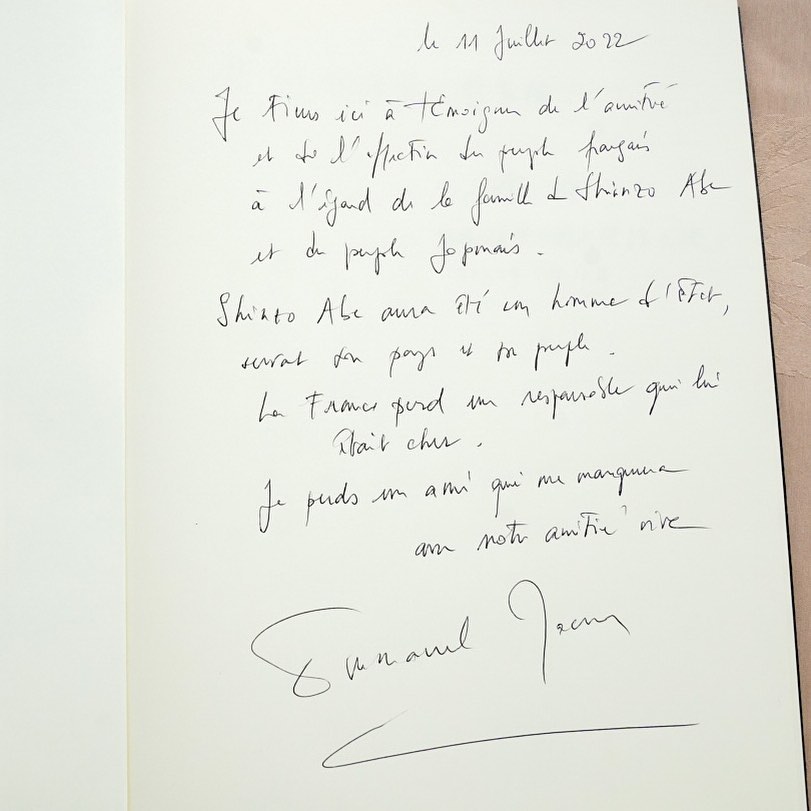 le 11 Juillet 2022
Je tiens ici à témoigner de l'amitié
et de l'affection du peuple français
à l'égard de la famille de Shinzo Abe
et du peuple Japonais.
Shinzo Abe aura été un homme d'État,
servant son pays et son peuple.
La France perd un responsable qui lui
était cher.
Je perds un ami qui me manquera
avec notre amitié vive
Emmanuel Macron